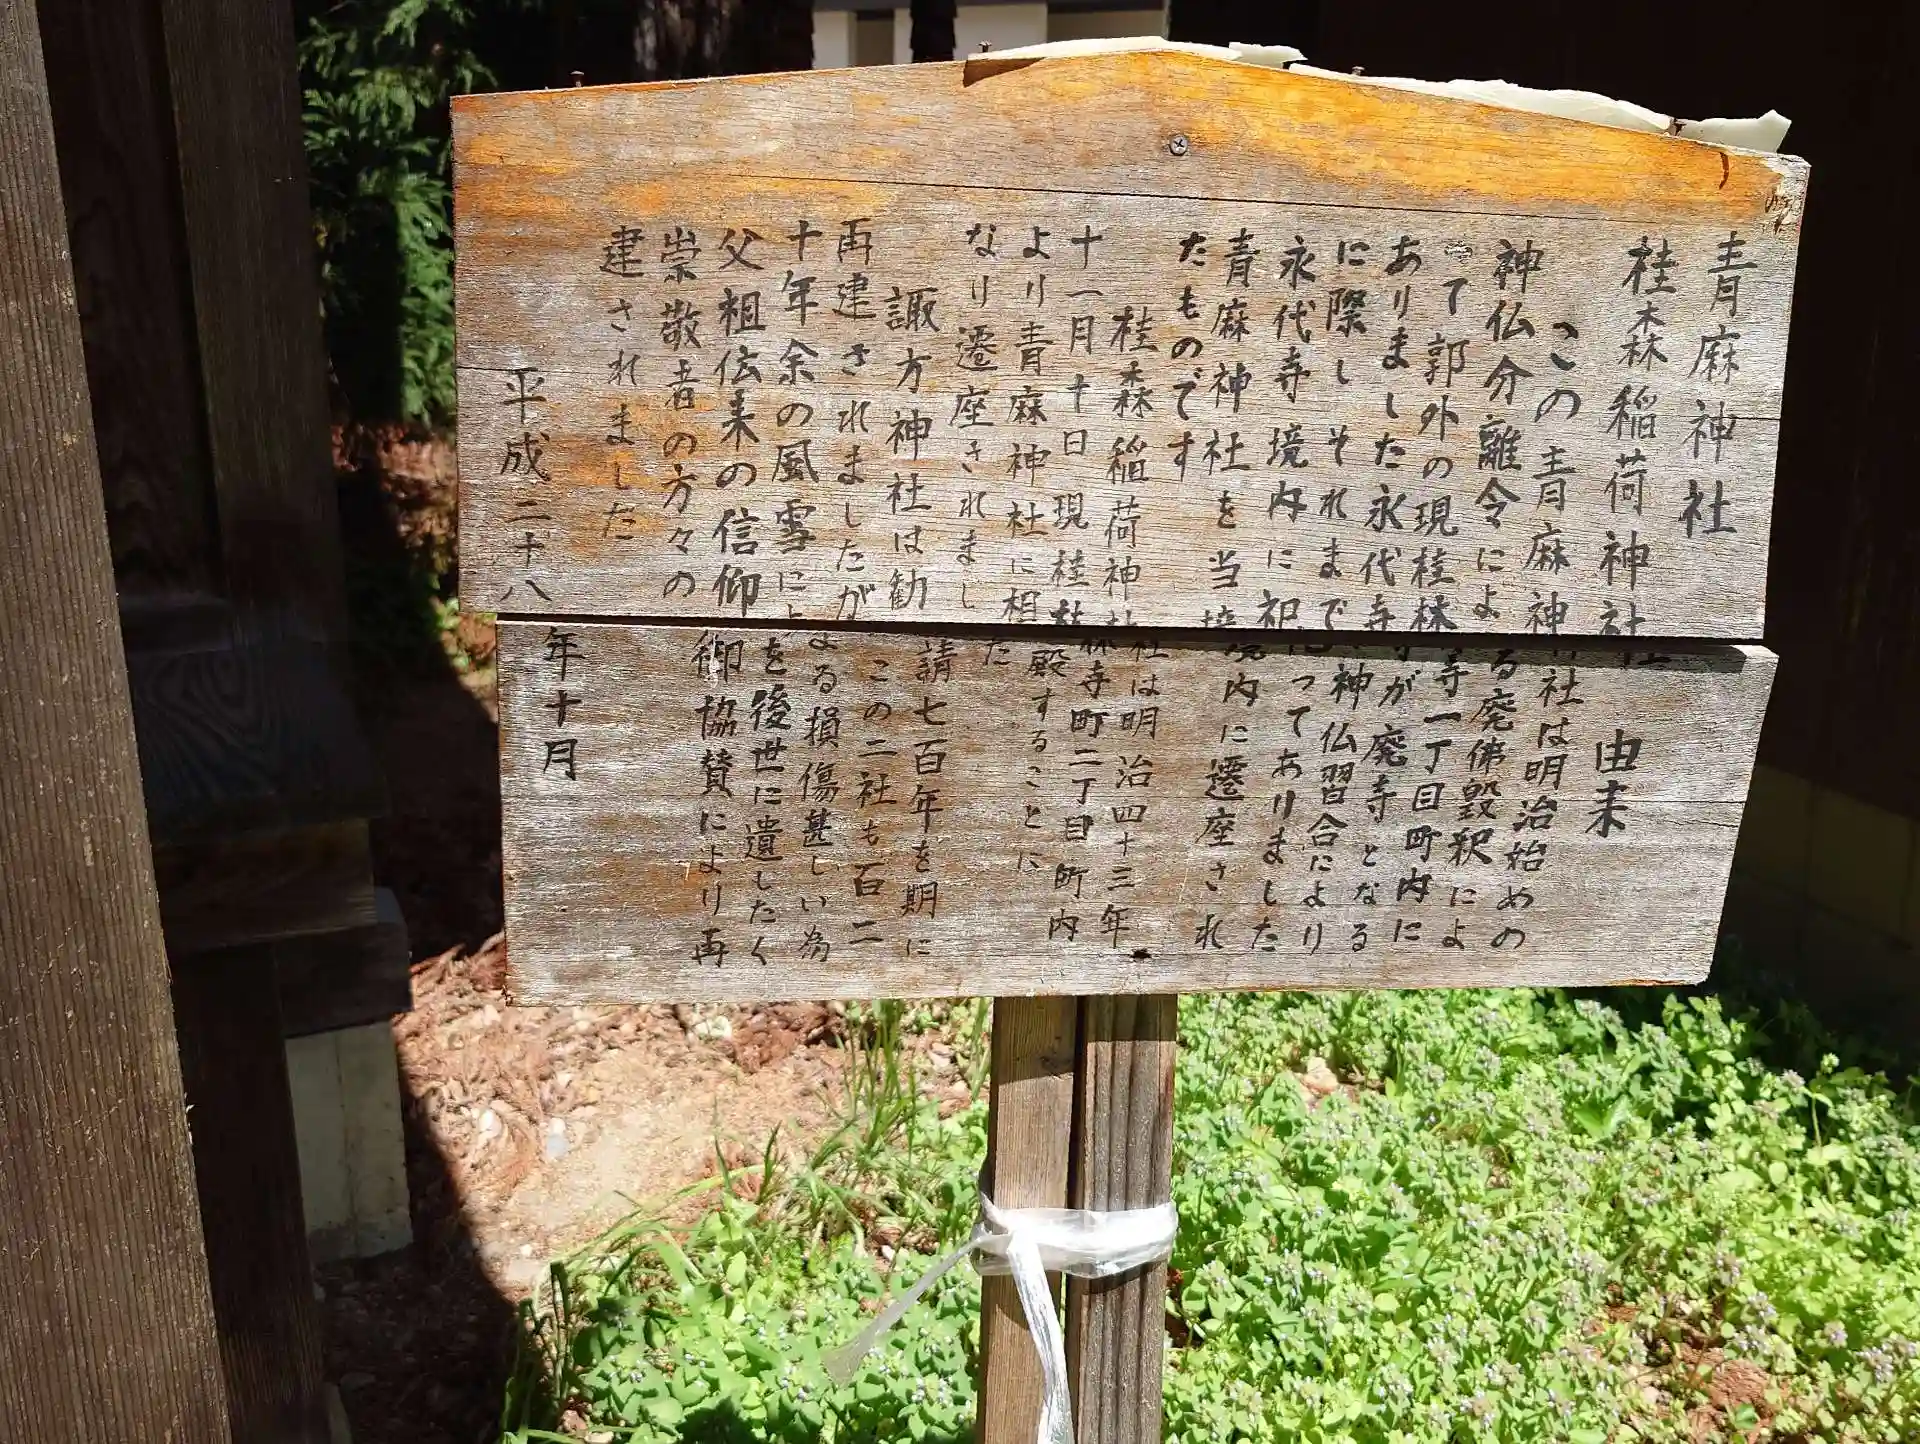 青麻神社
桂森稲荷神社　由来
この青麻神社は明治始めの
神仏分離令による廃佛毀釈によ
って郭外の現桂林寺一丁目町内に
ありました永代寺が廃寺となる
に際しそれまで神仏習合により
永代寺境内に祀ってありました
青麻神社を当境内に遷座され
たものです
桂森稲荷神社は明治四十三年
十一月十日現桂林寺町二丁目町内
より青麻神社に相殿することに
なり遷座されました
諏方神社は勧請七百年を期に
再建されましたがこの二社も百二
十年余の風雪による損傷甚しい為
父祖伝来の信仰を後世に遺したく
崇敬者の方々の御協賛により再
建されました
平成二十八年十月